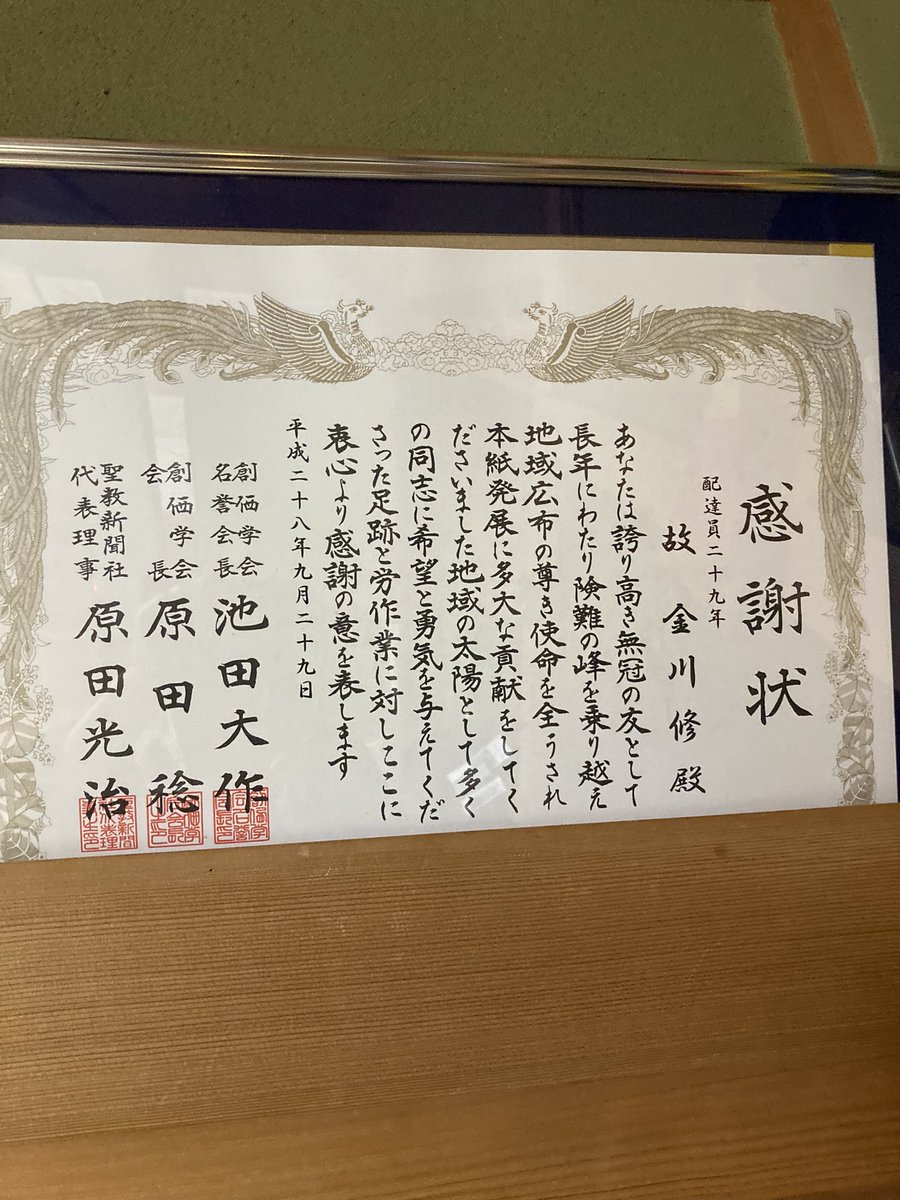 感謝状
配達員二十九年
故 金川修殿
あなたは誇り高き無冠の友として
長年にわたり険難の峰を乗り越え
地域広布の尊き使命を全うされ
本紙発展に多大な貢献をしてく
ださいました地域の太陽として多く
の同志に希望と勇気を与えてくだ
さった足跡と労作業に対しここに
衷心より感謝の意を表します
平成二十八年九月二十九日
創価学会
名誉会長 池田大作
創価学会
会長 原田稔
聖教新聞社
代表理事 原田光治